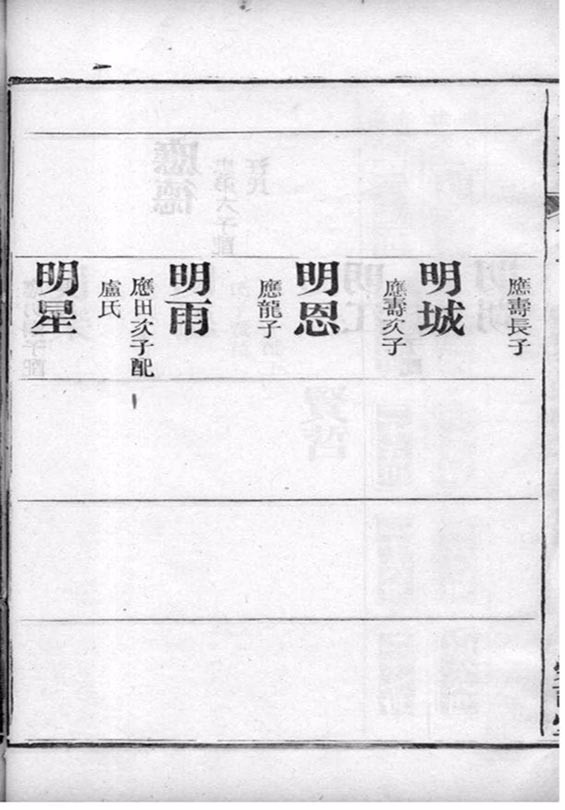 應壽長子
明城
應壽次子
明恩
應龍子
明雨
應田次子配
盧氏
明星